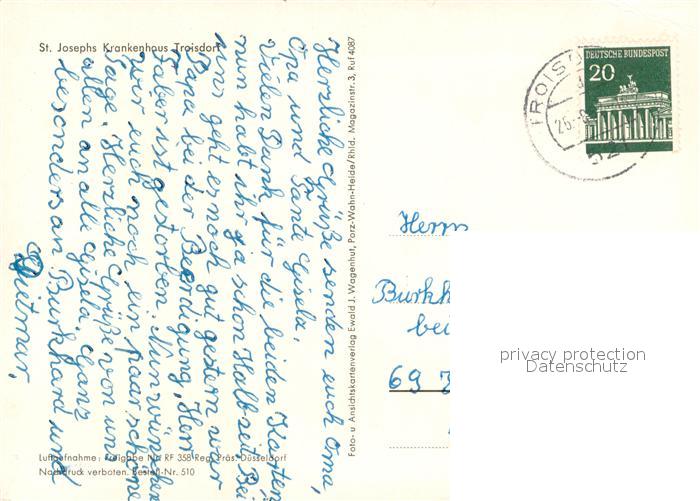 St. Josephs Krankenhaus Troisdorf
Herzliche Grüße senden euch Oma,
Opa und Tante Gisela.
Vielen Dank, für die beiden Karten
nun habt ihr ja schon Halbzeit. Bei
uns geht es noch gut gestern war
Papa bei der Beerdigung, Herr
Faber ist gestorben. Nun wünschen
wir euch noch ein paar schöne
Tage. Herzliche Grüße von uns
allen an alle Gisela. Ganz
besonders an Burkhard und
Dietmar,
Luftaufnahme: Freigabe Nr. RF 358 Reg. Präs. Düsseldorf
Nachdruck verboten. Bestell-Nr. 510
Foto- u Ansichtskartenverlag Ewald J. Wagenhut, Porz-Wahn-Heide/Rhld. Magazinstr. 3, Ruf 4087
DEUTSCHE BUNDESPOST
20
TROISD
521
Herrn
Burkh
bei
69
privacy protection
Datenschutz